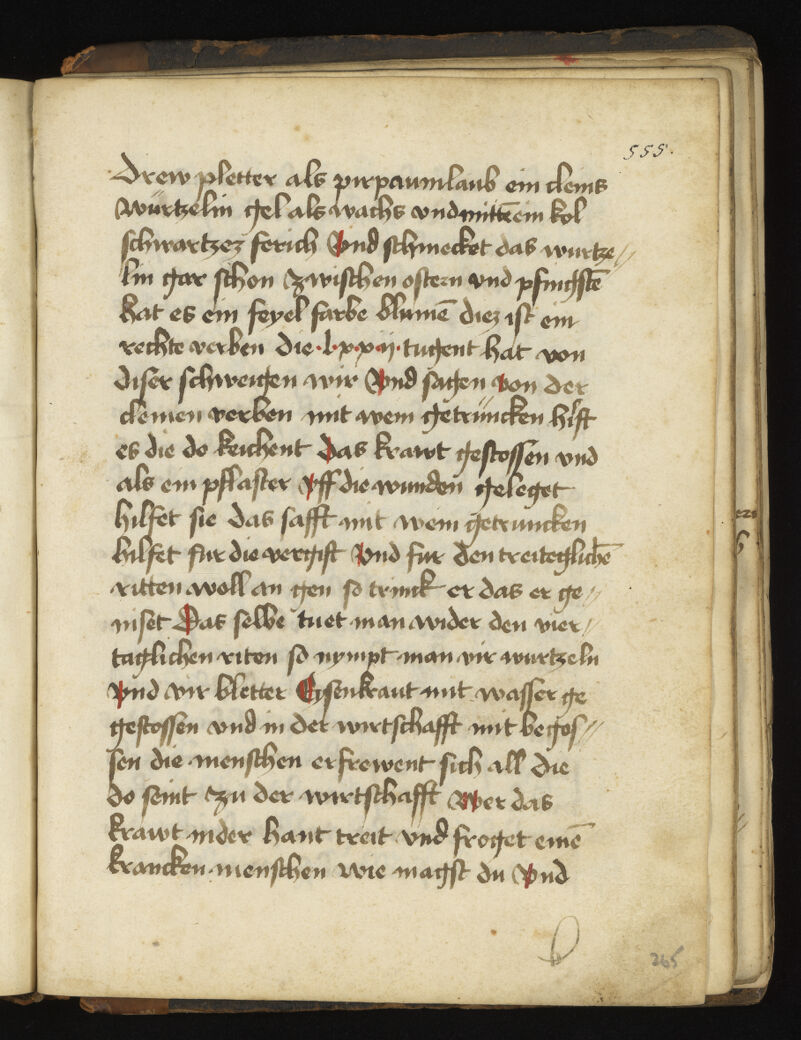 555.
Drew pletter als pirpaumlaub ein cleins
Würtzelin gel als wachs vnd mittē ein kol
schwartzez ferich Vnd schmecket das wurtze〃
lin gar schon Zwischen ostern vnd pfingstē
hat es ein feyel farbe blumē diez ist ein
rechte verben die ·l·x·x·ij· tugent hat von
diser schweigen wir Vnd sagen von der
cleinen verben mit wein getrüncken hilft
es die do keichent Das krawt gestossen vnd
als ein pflaster vff die wunden geleget
hilfet sie das safft mit wein getruncken
hilfet fur die vergift Vnd fur den treiteglichē
ritten woll an gen so trinck er das er ge〃
niset Das selbe tuet man wider den vier〃
taglichen riten so nympt man vir wurtzeln
Vnd vir bletter Eysenkraut mit wasser ge
gestossen vnd in der wirtschafft mit begos〃
sen die menschen erfrewent sich all die
do seint zu der wirtschafft Wer das
krawt in der hant treit vnd froget einē
krancken menschen wie magst du Vnd
265